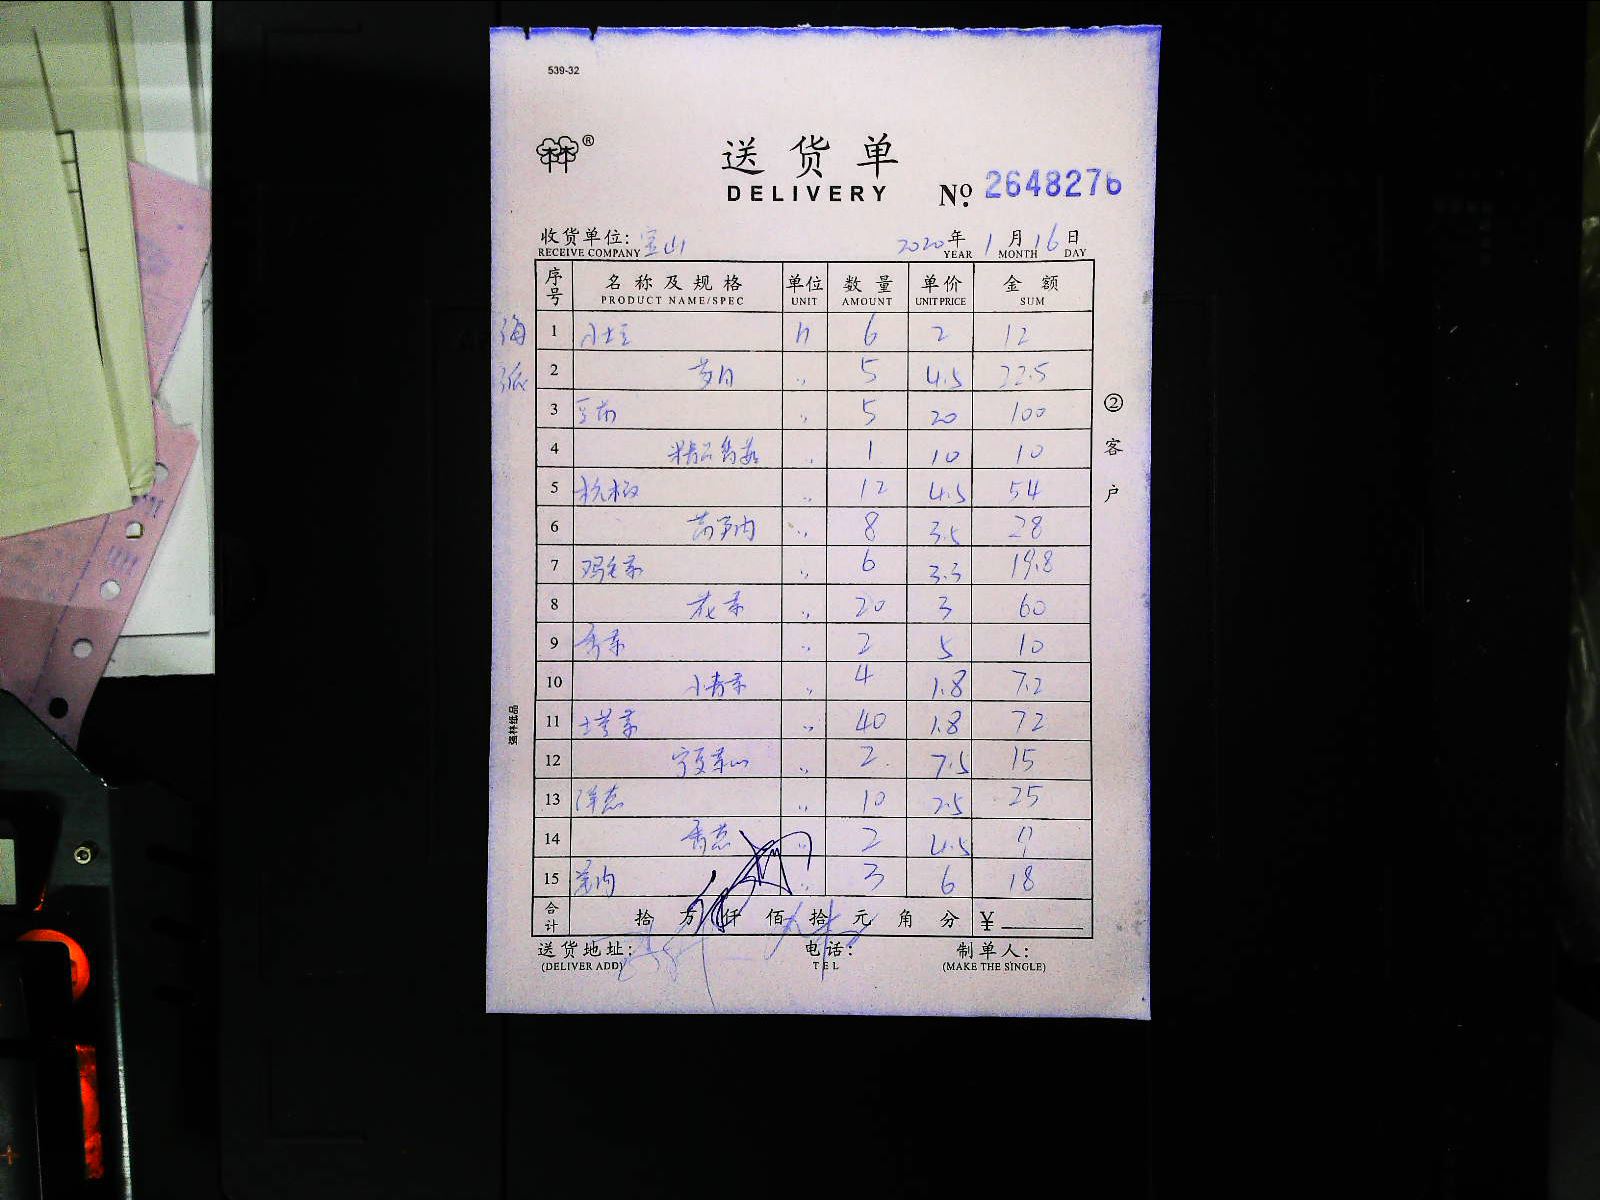 539-32
林®
送货单
DELIVERY
No. 2648276
收货单位: 宝山 2020年 1月 16日
RECEIVE COMPANY YEAR MONTH DAY
序号 名称及规格 单位 数量 单价 金额
PRODUCT NAME/SPEC UNIT AMOUNT UNIT PRICE SUM
1 小土豆 斤 6 2 12
2 〃 5 4.5 22.5
3 〃 5 20 100
4 精品香菇 〃 1 10 10
5 杭椒 〃 12 4.5 54
6 莴笋肉 〃 8 3.5 28
7 鸡毛菜 〃 6 3.3 19.8
8 花菜 〃 20 3 60
9 香菜 〃 2 5 10
10 小青菜 〃 4 1.8 7.2
11 塔菜 〃 40 1.8 72
12 宁夏菜心 〃 2 7.5 15
13 洋葱 〃 10 2.5 25
14 香葱 〃 2 4.5 9
15 姜肉 〃 3 6 18
合计 拾 万 仟 佰 拾 元 角 分 ¥
送货地址: 电话: 制单人:
(DELIVER ADD) TEL (MAKE THE SINGLE)
②客户
强林纸品